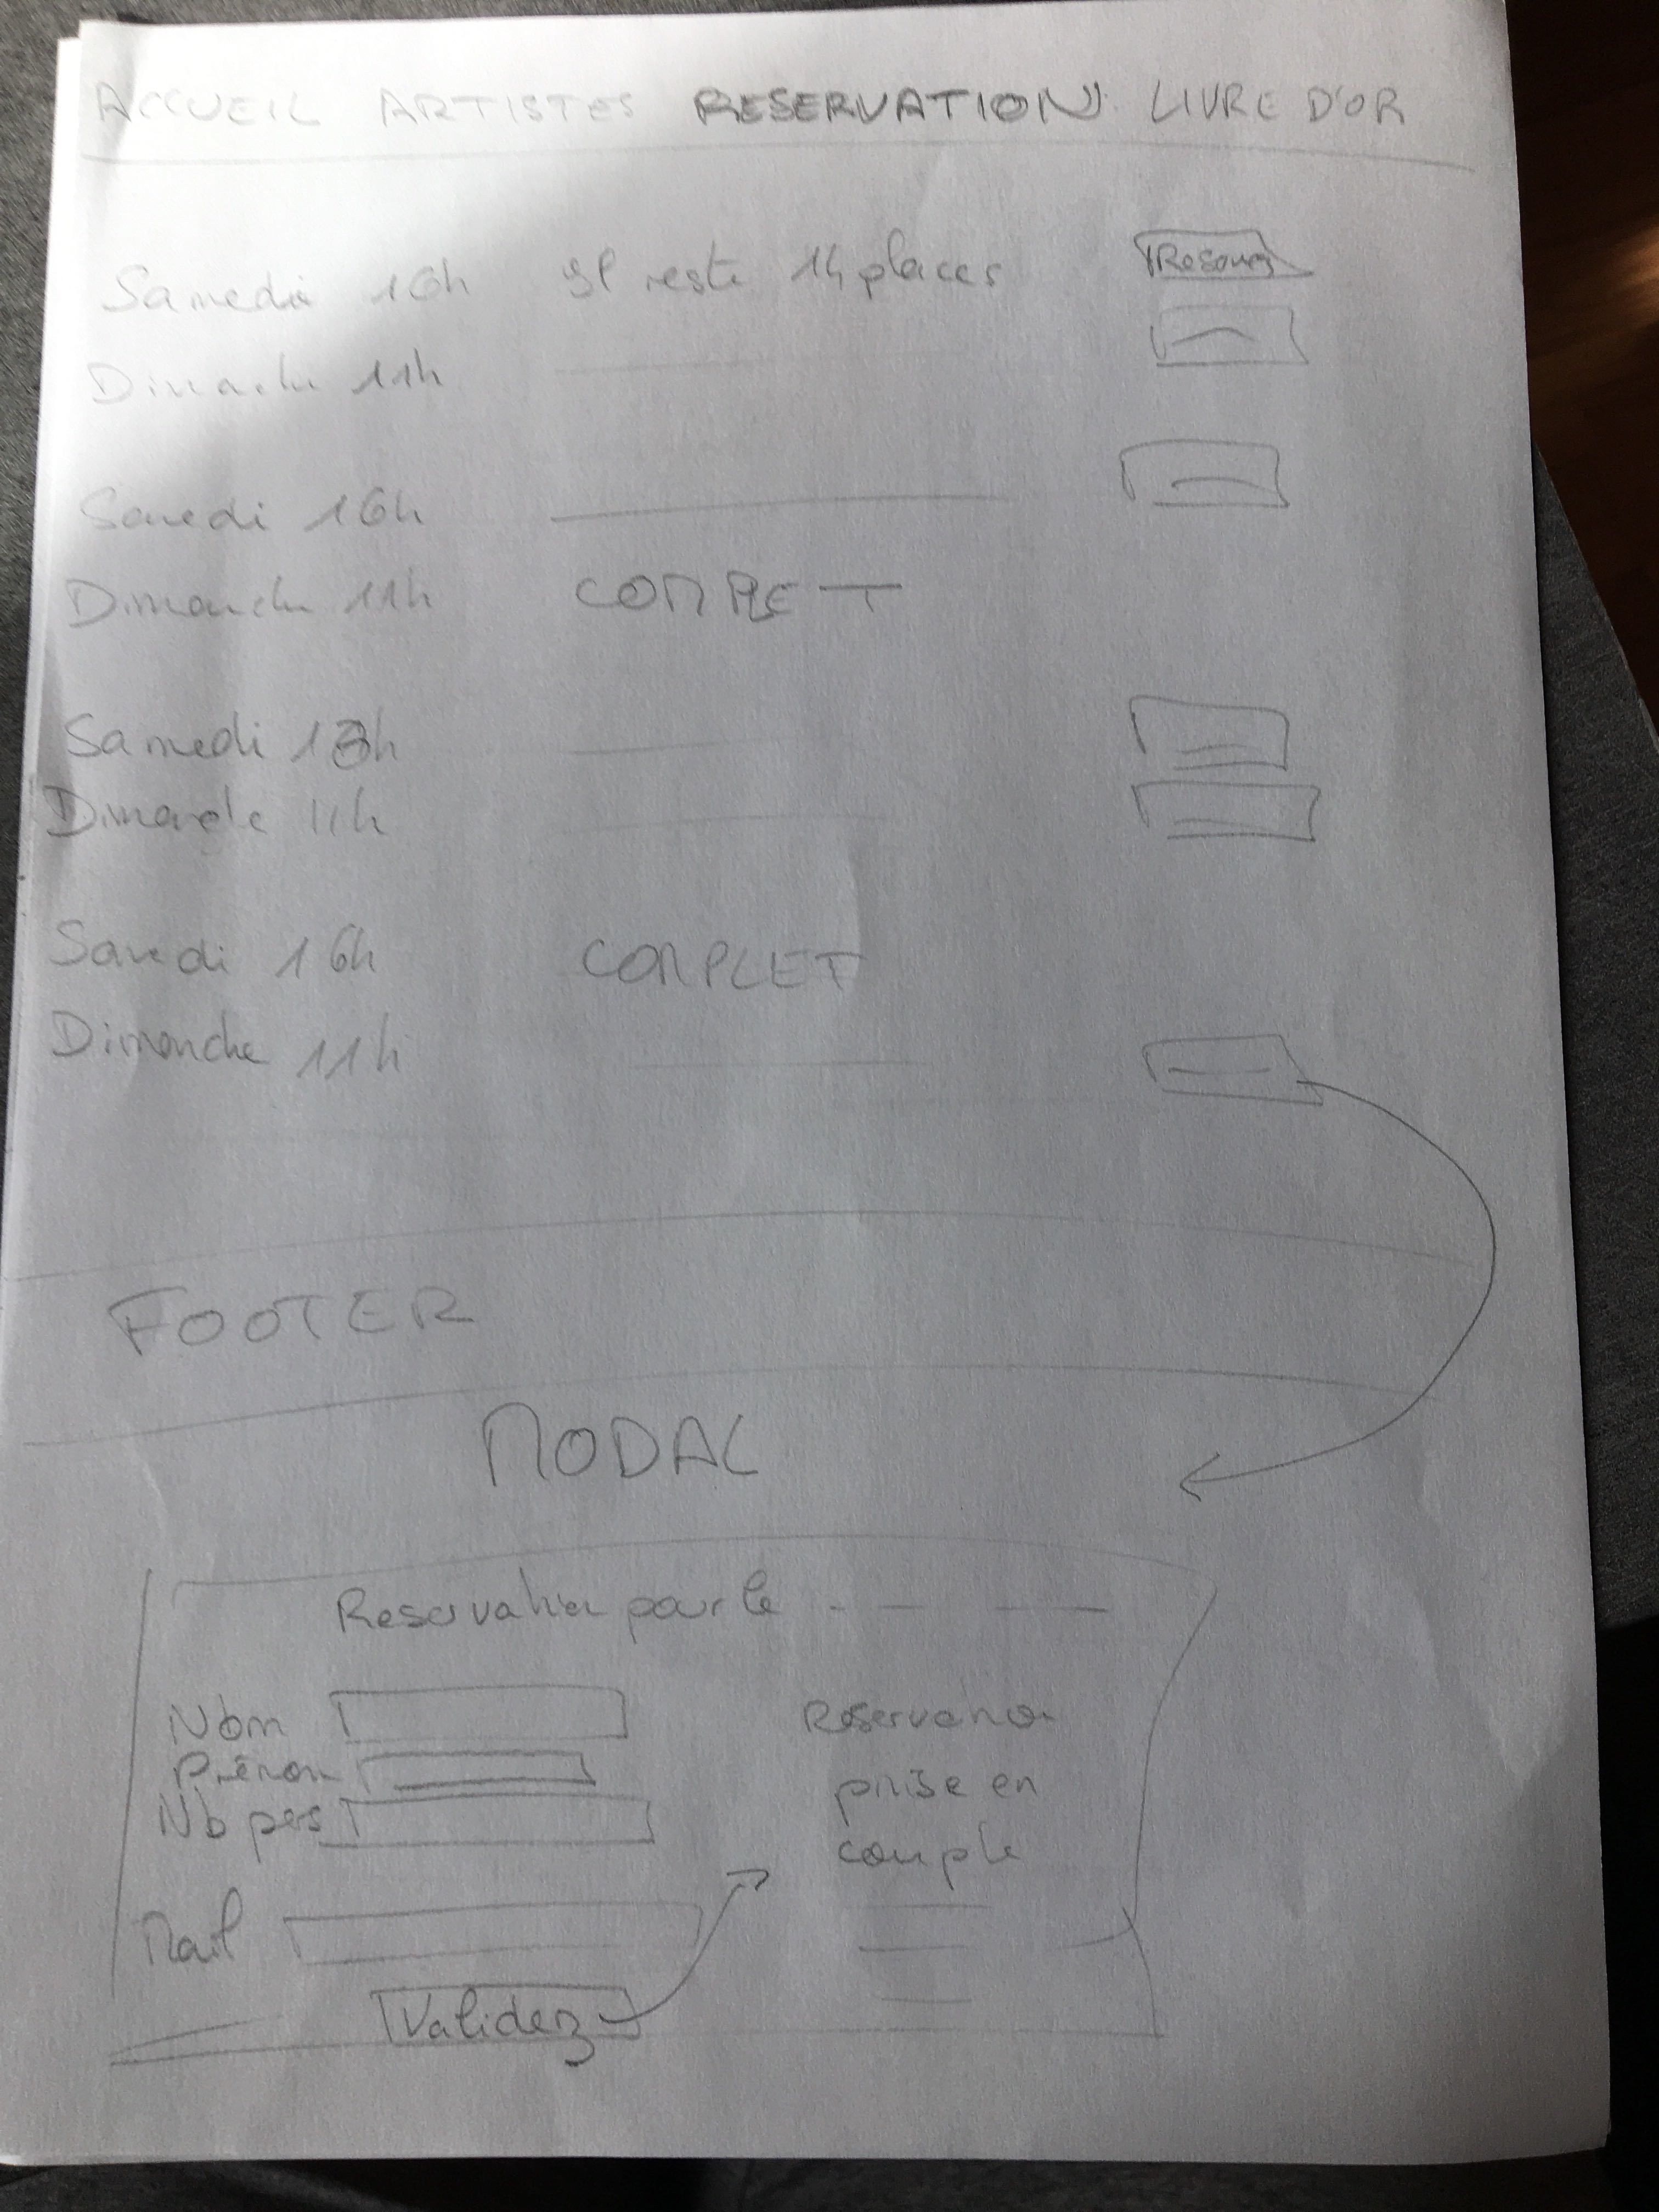 ACCUEIL ARTISTES RESERVATION LIVRE D'OR
Samedi 16h Il reste 14 places Reservez
Dimanche 11h
Samedi 16h
Dimanche 11h COMPLET
Samedi 18h
Dimanche 11h
Samedi 16h COMPLET
Dimanche 11h
FOOTER
MODAL
Reservation pour le
Nom Reservation
Prénom prise en
Nb pers compte
Mail
Validez